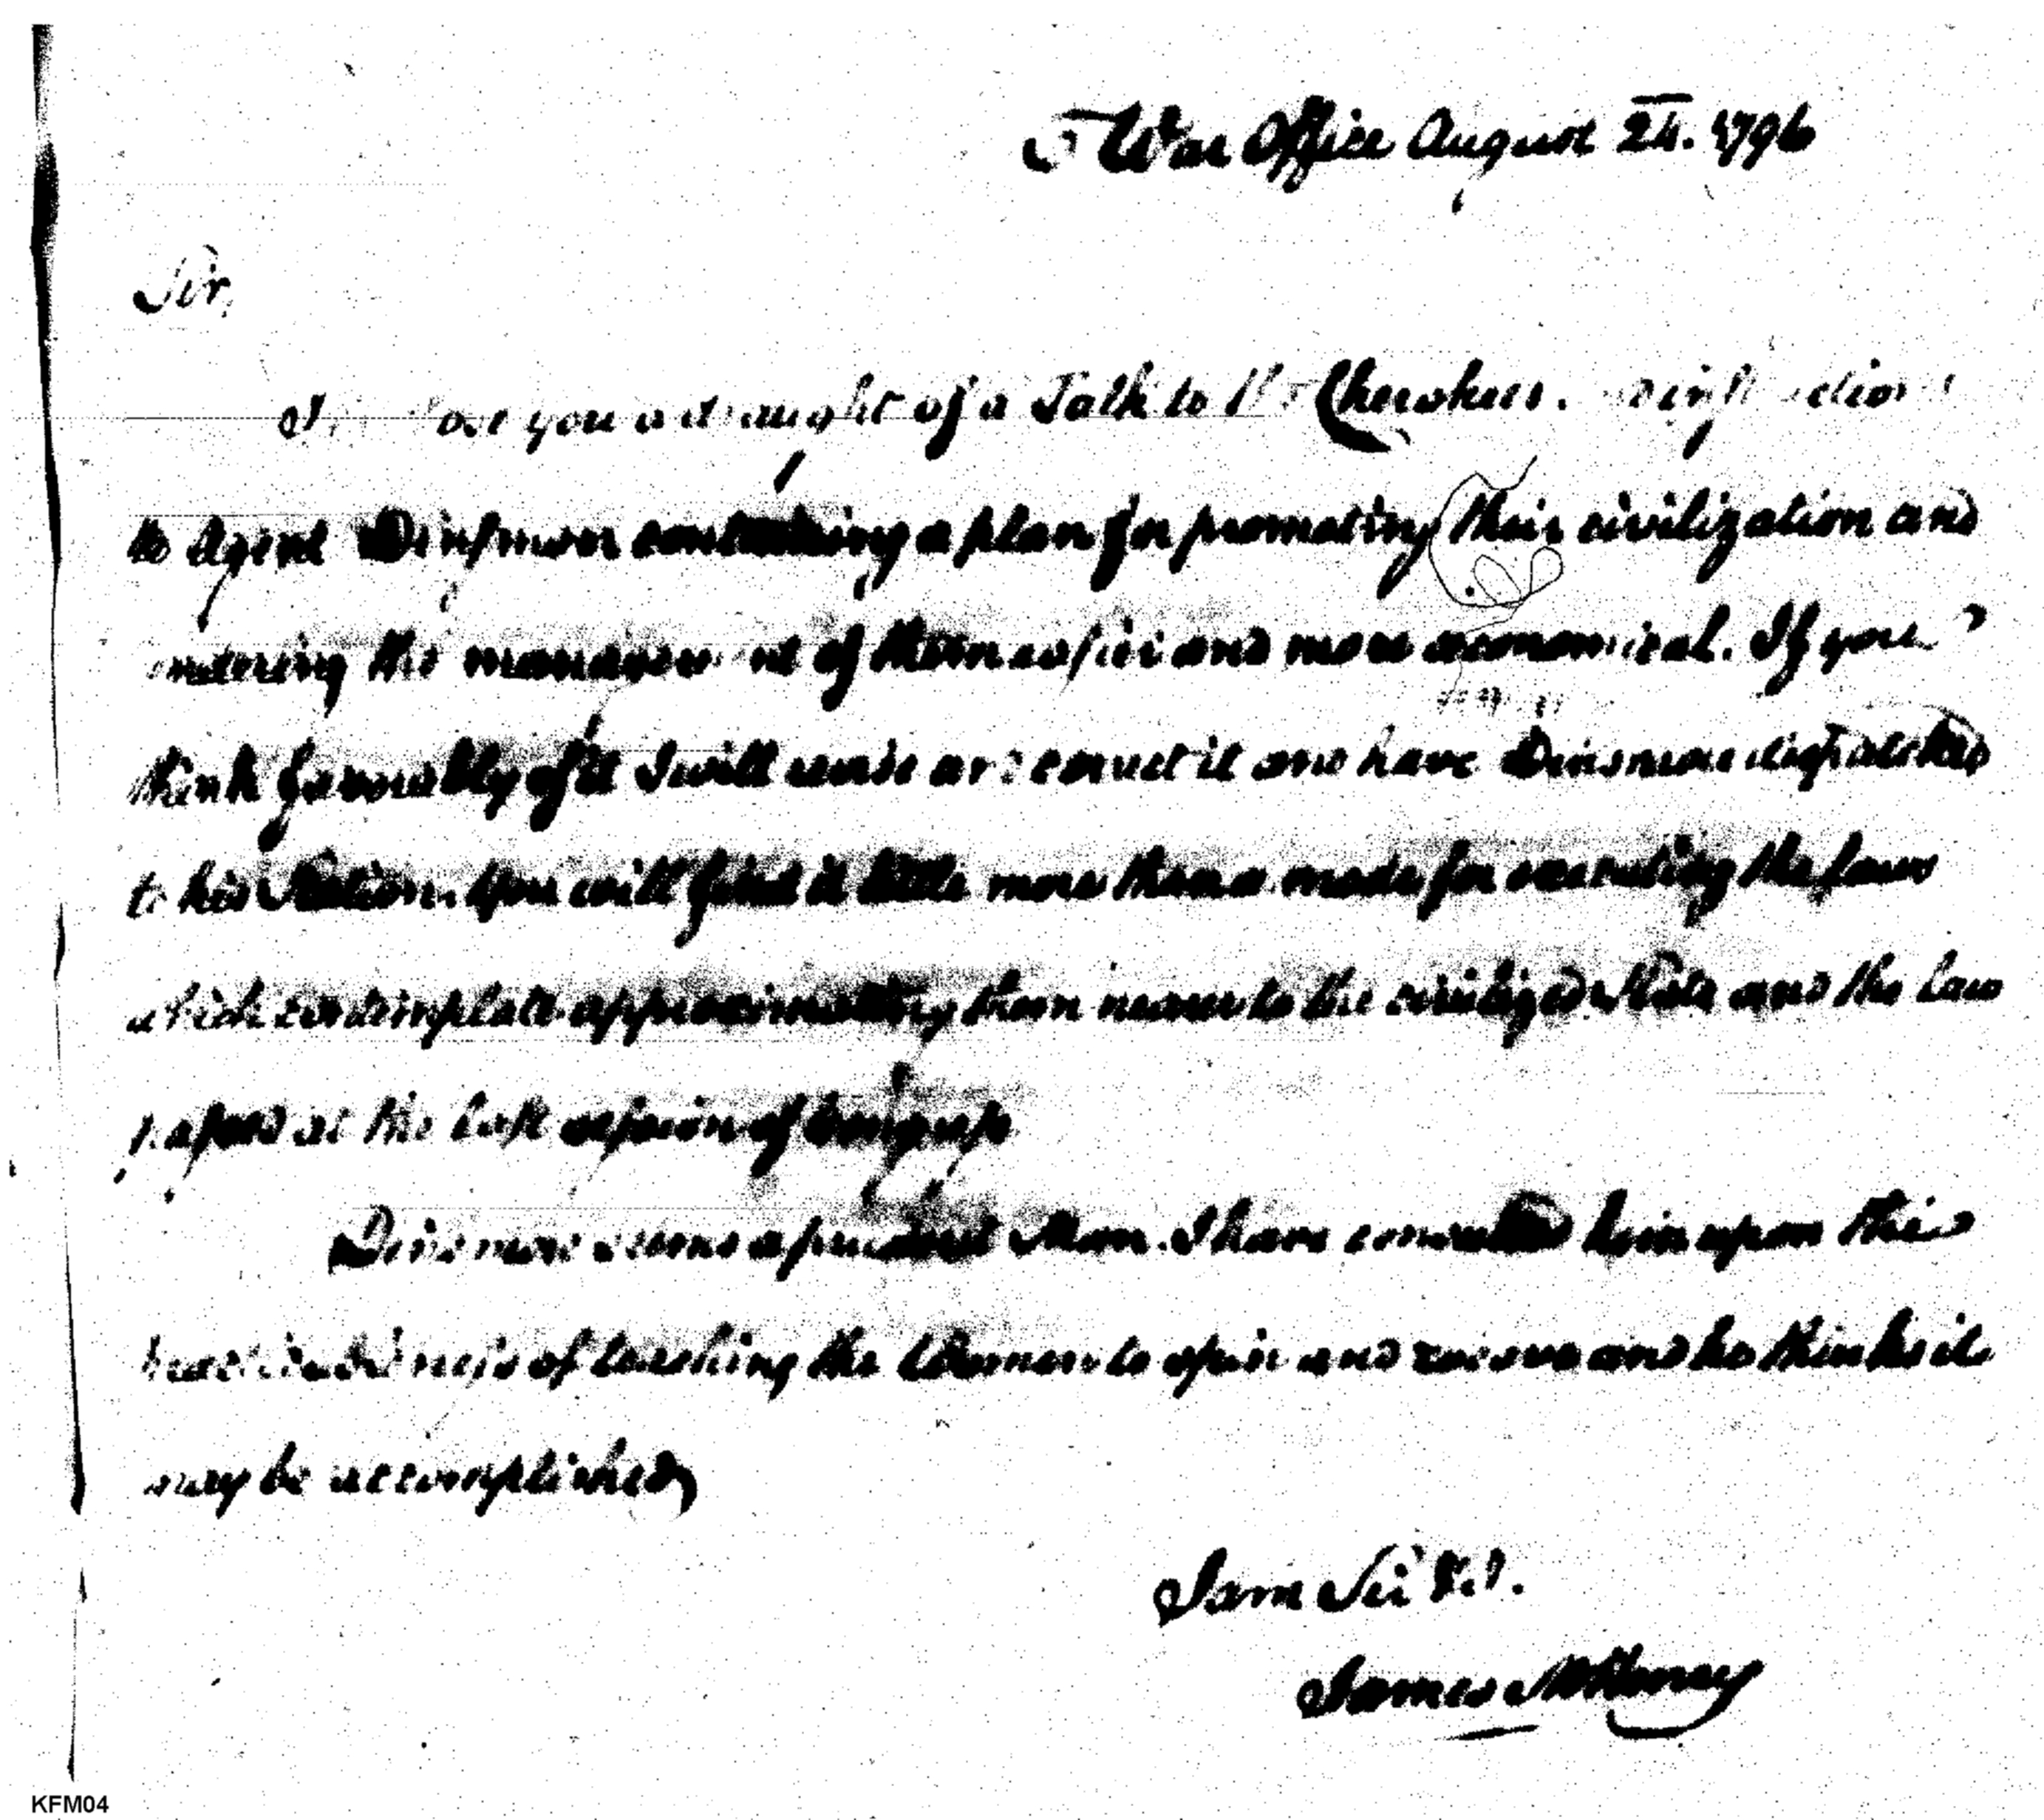 War Office August 24. 1796
Sir,
you a draught of a Talk to the Cherokees.
to Agent Dinsmoor containing a plan for promoting their civilization and
rendering the management of them easier and more economical. If you
think favourably of it I will revise and correct it and have Dinsmore dispatched
to his Station. You will find it little more than a mode for executing the laws
which contemplate approximating them nearer to the civilized State and the law
passed at the last session of Congress
Dinsmore seems a prudent Man. I have consulted him upon the
of teaching the Women to spin and weave and he thinks it
may be accomplished
I am Sir &c.
James McHenry
KFM04